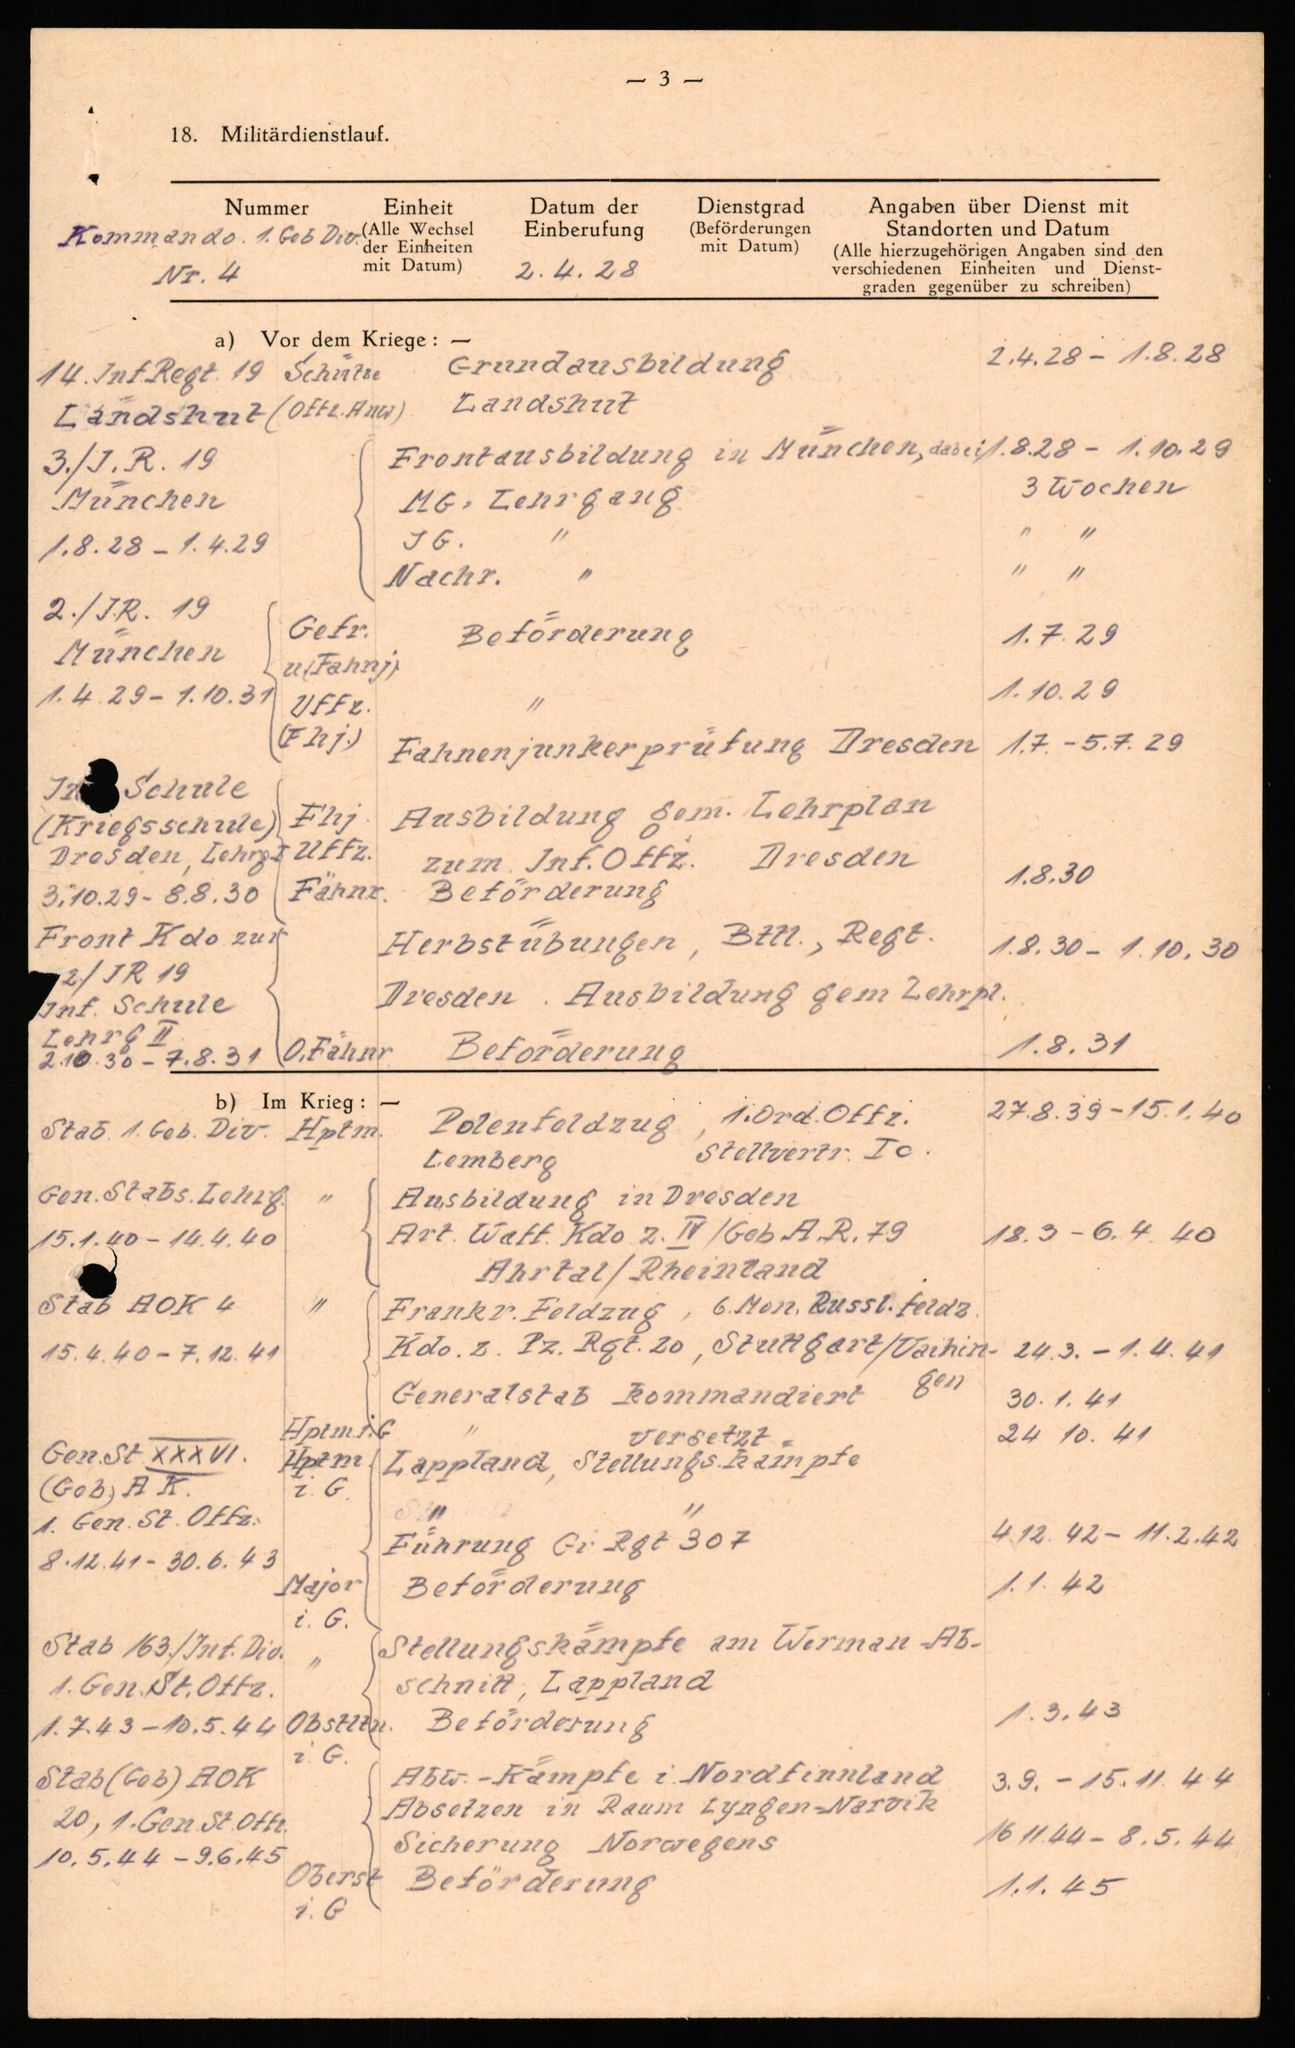 — 3 —
18. Militärdienstlauf.
Nummer Einheit Datum der Dienstgrad Angaben über Dienst mit
Kommando. 1. Geb Div. (Alle Wechsel Einberufung (Beförderungen Standorten und Datum
der Einheiten mit Datum) (Alle hierzugehörigen Angaben sind den
Nr. 4 mit Datum) 2.4.28 verschiedenen Einheiten und Dienst-
graden gegenüber zu schreiben)
a) Vor dem Kriege: —
14. Inf. Regt. 19 Schütze Grundausbildung 2.4.28 – 1.8.28
Landshut (Offz. Anw) Landshut
3./I.R. 19 Frontausbildung in München, dabei 1.8.28 – 1.10.29
München MG. Lehrgang 3 Wochen
1.8.28 – 1.4.29 IG. " " "
Nachr. " " "
2./I.R. 19 Gefr. Beförderung 1.7.29
München u. (Fahnj)
1.4.29 – 1.10.31 Uffz. " 1.10.29
(Fhj.) Fahnenjunkerprüfung Dresden 1.7. – 5.7.29
Inf. Schule
(Kriegsschule) Fhj. Ausbildung gem. Lehrplan
Dresden, Lehrg I Uffz. zum Inf. Offz. Dresden
3.10.29 – 8.8.30 Fähnr. Beförderung 1.8.30
Front Kdo zur Herbstübungen, Btll., Regt. 1.8.30 – 1.10.30
2./IR 19
Inf. Schule Dresden. Ausbildung gem Lehrpl.
Lehrg II
2.10.30 – 7.8.31 O. Fähnr Beförderung 1.8.31
b) Im Krieg: —
Stab. 1. Geb. Div. Hptm. Polenfeldzug, 1. Ord. Offz. 27.8.39 – 15.1.40
Lemberg Stellvertr. Ic.
Gen. Stabs. Lehrg. " Ausbildung in Dresden
15.1.40 – 14.4.40 Art. Waff. Kdo z. IV/Geb. A.R. 79 18.3 – 6.4.40
Ahrtal/Rheinland
Stab AOK 4 " Frankr. Feldzug, 6. Mon. Russl. feldz.
15.4.40 – 7.12.41 Kdo. z. Pz. Rgt. 20, Stuttgart/Vaihin- 24.3. – 1.4.41
gen
Generalstab kommandiert 30.1.41
Hptm. i. G " versetzt 24 10. 41
Gen. St XXXVI. Hptm Lappland, Stellungs. kämpfe
(Geb) A K. i. G.
1. Gen. St. Offz. " "
8.12.41 – 30.6.43 Führung Gr. Rgt 307 4.12.42 – 11.2.42
Major Beförderung 1.1.42
i. G.
Stab 163./Inf. Div. " Stellungskämpfe am Werman - Ab-
1. Gen. St. Offz. schnitt, Lappland
1.7.43 – 10.5.44 Obstltn. Beförderung 1.3.43
i. G.
Stab (Geb) AOK Abw. - Kämpfe i. Nordfinnland 3.9. – 15.11.44
20, 1. Gen. St. Offz. Absetzen in Raum Lyngen-Narvik
10.5.44 – 9.6.45 Sicherung Norwegens 16 11.44 – 8.5.44
Oberst Beförderung 1.1.45
i. G